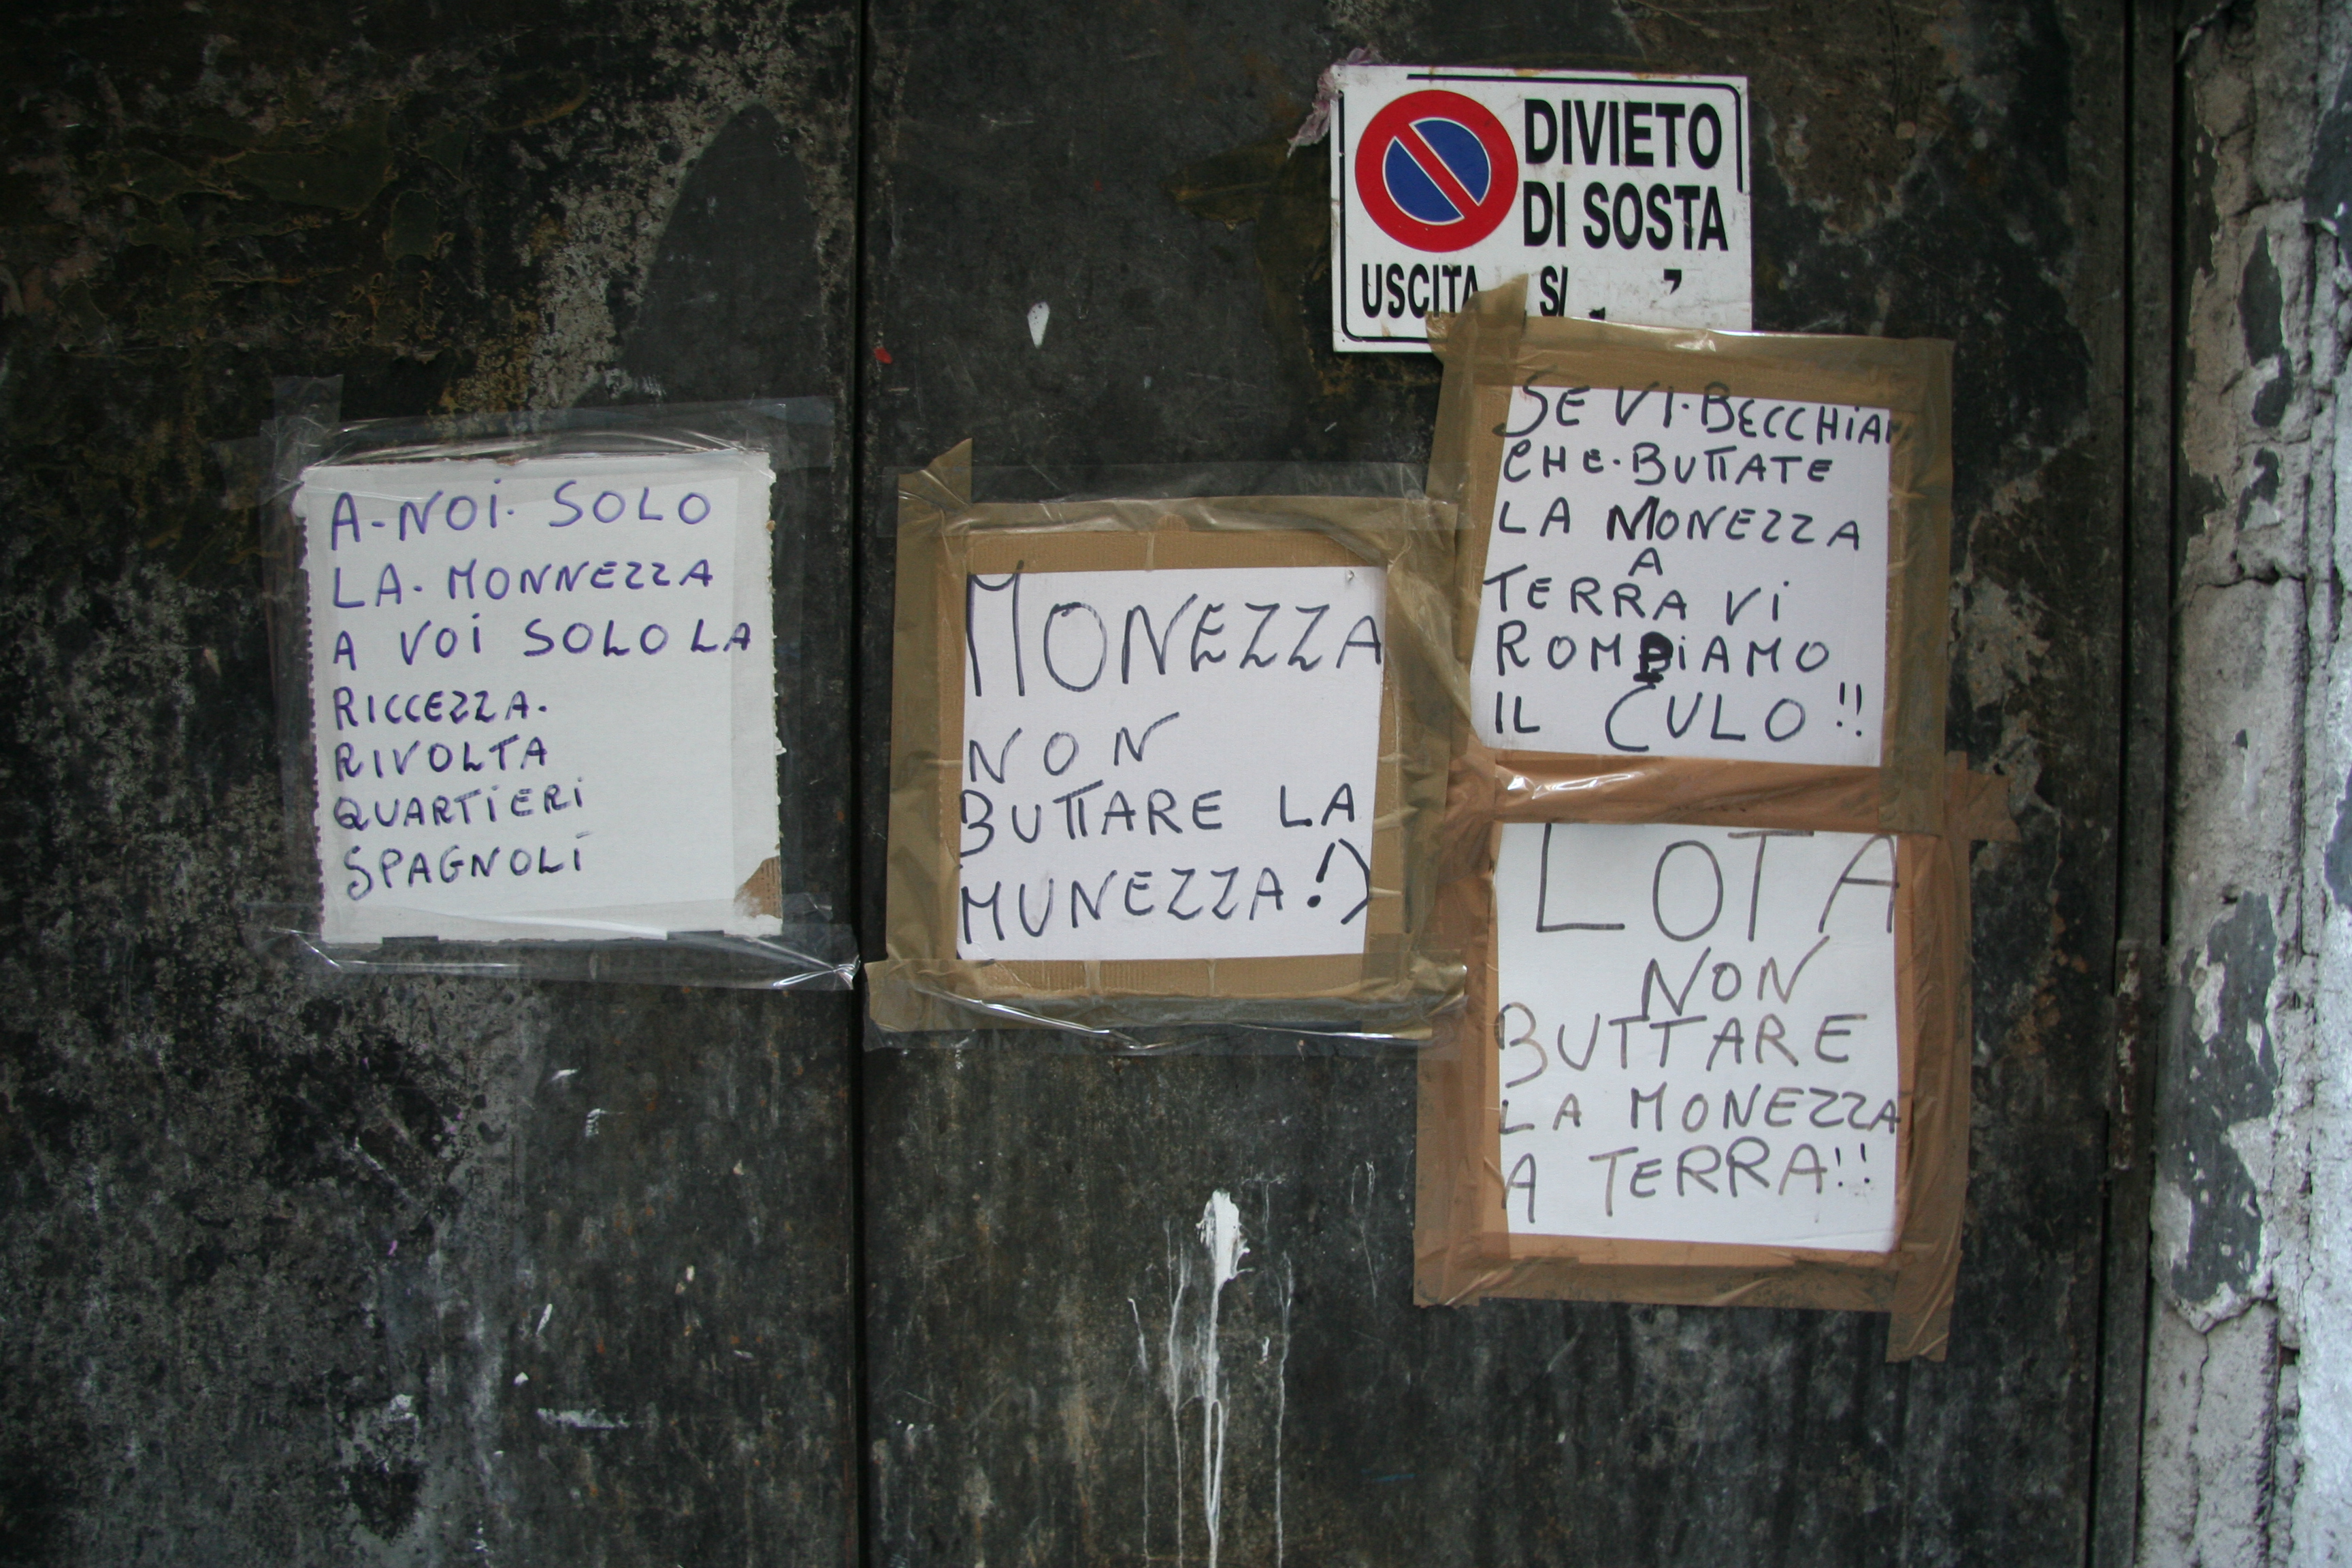 A-NOI· SOLO
LA- MONNEZZA
A VOI SOLO LA
RICCEZZA.
RIVOLTA
QUARTIERI
SPAGNOLI
MONEZZA
NON
BUTTARE LA
MUNEZZA!)
DIVIETO
DI SOSTA
USCITA
SE VI·BECCHIAM
CHE·BUTTATE
LA MONEZZA
A
TERRA VI
ROMPIAMO
IL CULO!!
LOTA
NON
BUTTARE
LA MONEZZA
A TERRA!!